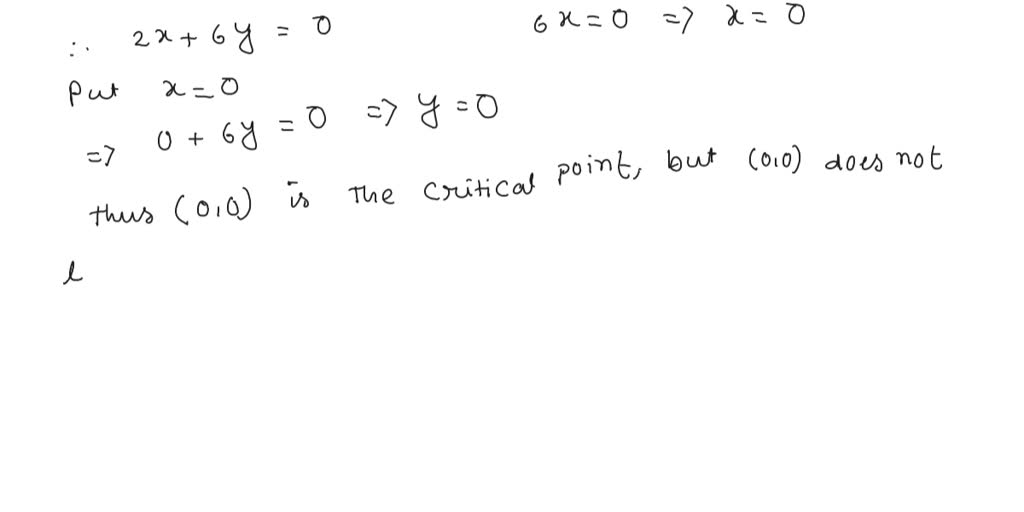 ∴ 2x + 6y = 0 6x = 0 => x = 0
Put x = 0
=> 0 + 6y = 0 => y = 0
thus (0,0) is The critical point, but (0,0) does not
l